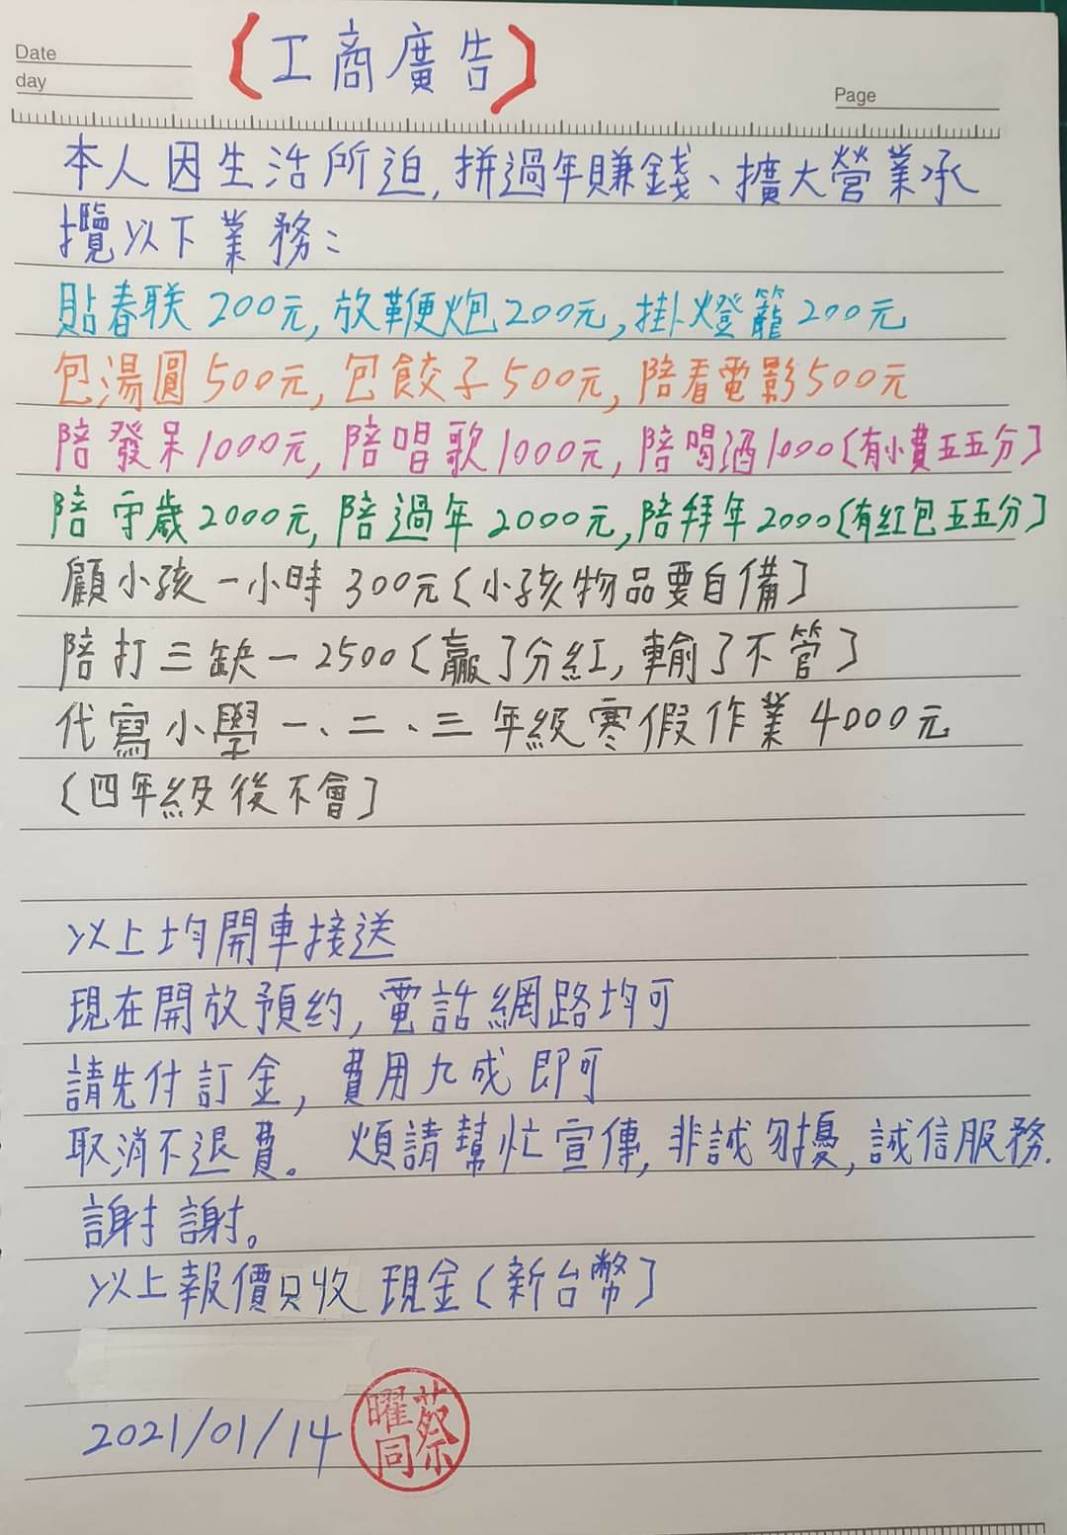 Date
day
〔工商廣告〕
Page
本人因生活所迫,拼過年賺錢、擴大營業承
攬以下業務:
貼春联200元,放鞭炮200元,掛燈籠200元
包湯圓500元,包餃子500元,陪看電影500元
陪發呆1000元,陪唱歌1000元,陪喝酒1000〔有小費五五分〕
陪守歲2000元,陪過年2000元,陪拜年2000〔有紅包五五分〕
顧小孩一小時300元〔小孩物品要自備〕
陪打三缺一2500〔贏了分紅,輸了不管〕
代寫小學一、二、三年級寒假作業4000元
〔四年級後不會〕
以上均開車接送
現在開放預約,電話網路均可
請先付訂金,費用九成即可
取消不退費。煩請幫忙宣傳,非誠勿擾,誠信服務.
謝謝。
以上報價只收現金〔新台幣〕
2021/01/14
蔡曜同